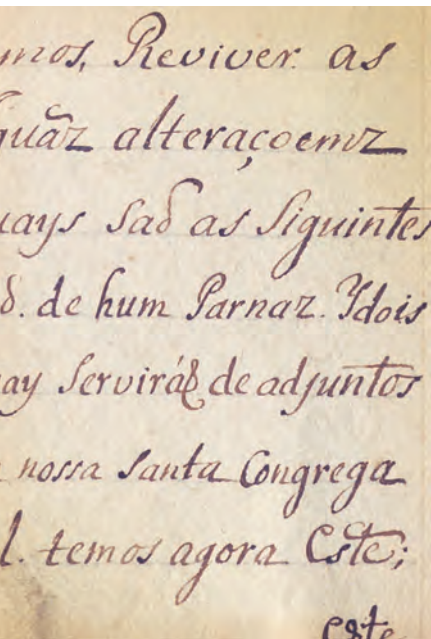 mos, Reviver as
guãz alteraçoemz
uays Saõ as Siguintes
õ. de hum Parnaz. Ydois
ay Serviráõ de adjuntos
nossa Santa Congrega
l. temos agora Este;
Este